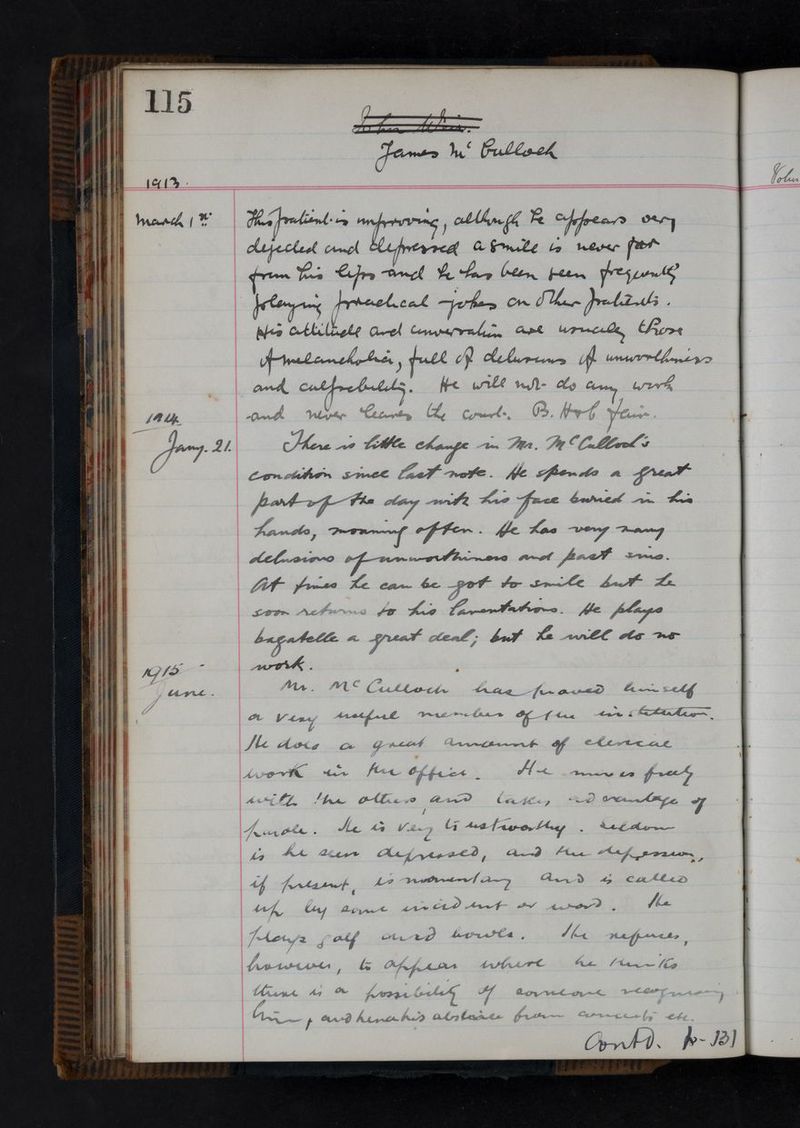 115
John Weir.
James Mc Culloch
1913.
March 1st This patient is improving, although he appears very
dejected and depressed a smile is never far
from his lips and he has been seen frequently
playing practical jokes on other patients.
His attitude and conversation are usually those
of melancholia, full of delusions of unworthiness
and culpability. He will not do any work
1914. and never leaves the court. B.
Jany. 21. There is little change in Mr. McCulloch's
condition since last note. He spends a great
part of the day with his face buried in his
hands, moaning often. He has very many
delusions of unworthiness and past sins.
At times he can be got to smile but he
soon returns to his lamentations. He plays
bagatelle a great deal; but he will do no
1915 work.
June. Mr. McCulloch has proved himself
a very useful member of the institution.
He does a great amount of clerical
work in the office. He mixes freely
with the others, and takes advantage of
parole. He is very trustworthy. Seldom
is he seen depressed, and the depression,
if present, is momentary and is called
up by some incident or word. He
plays golf and bowls. He refuses,
however, to appear where he thinks
there is a possibility of someone recognising
him, and hence his absence from concerts etc.
Contd. p-131
John